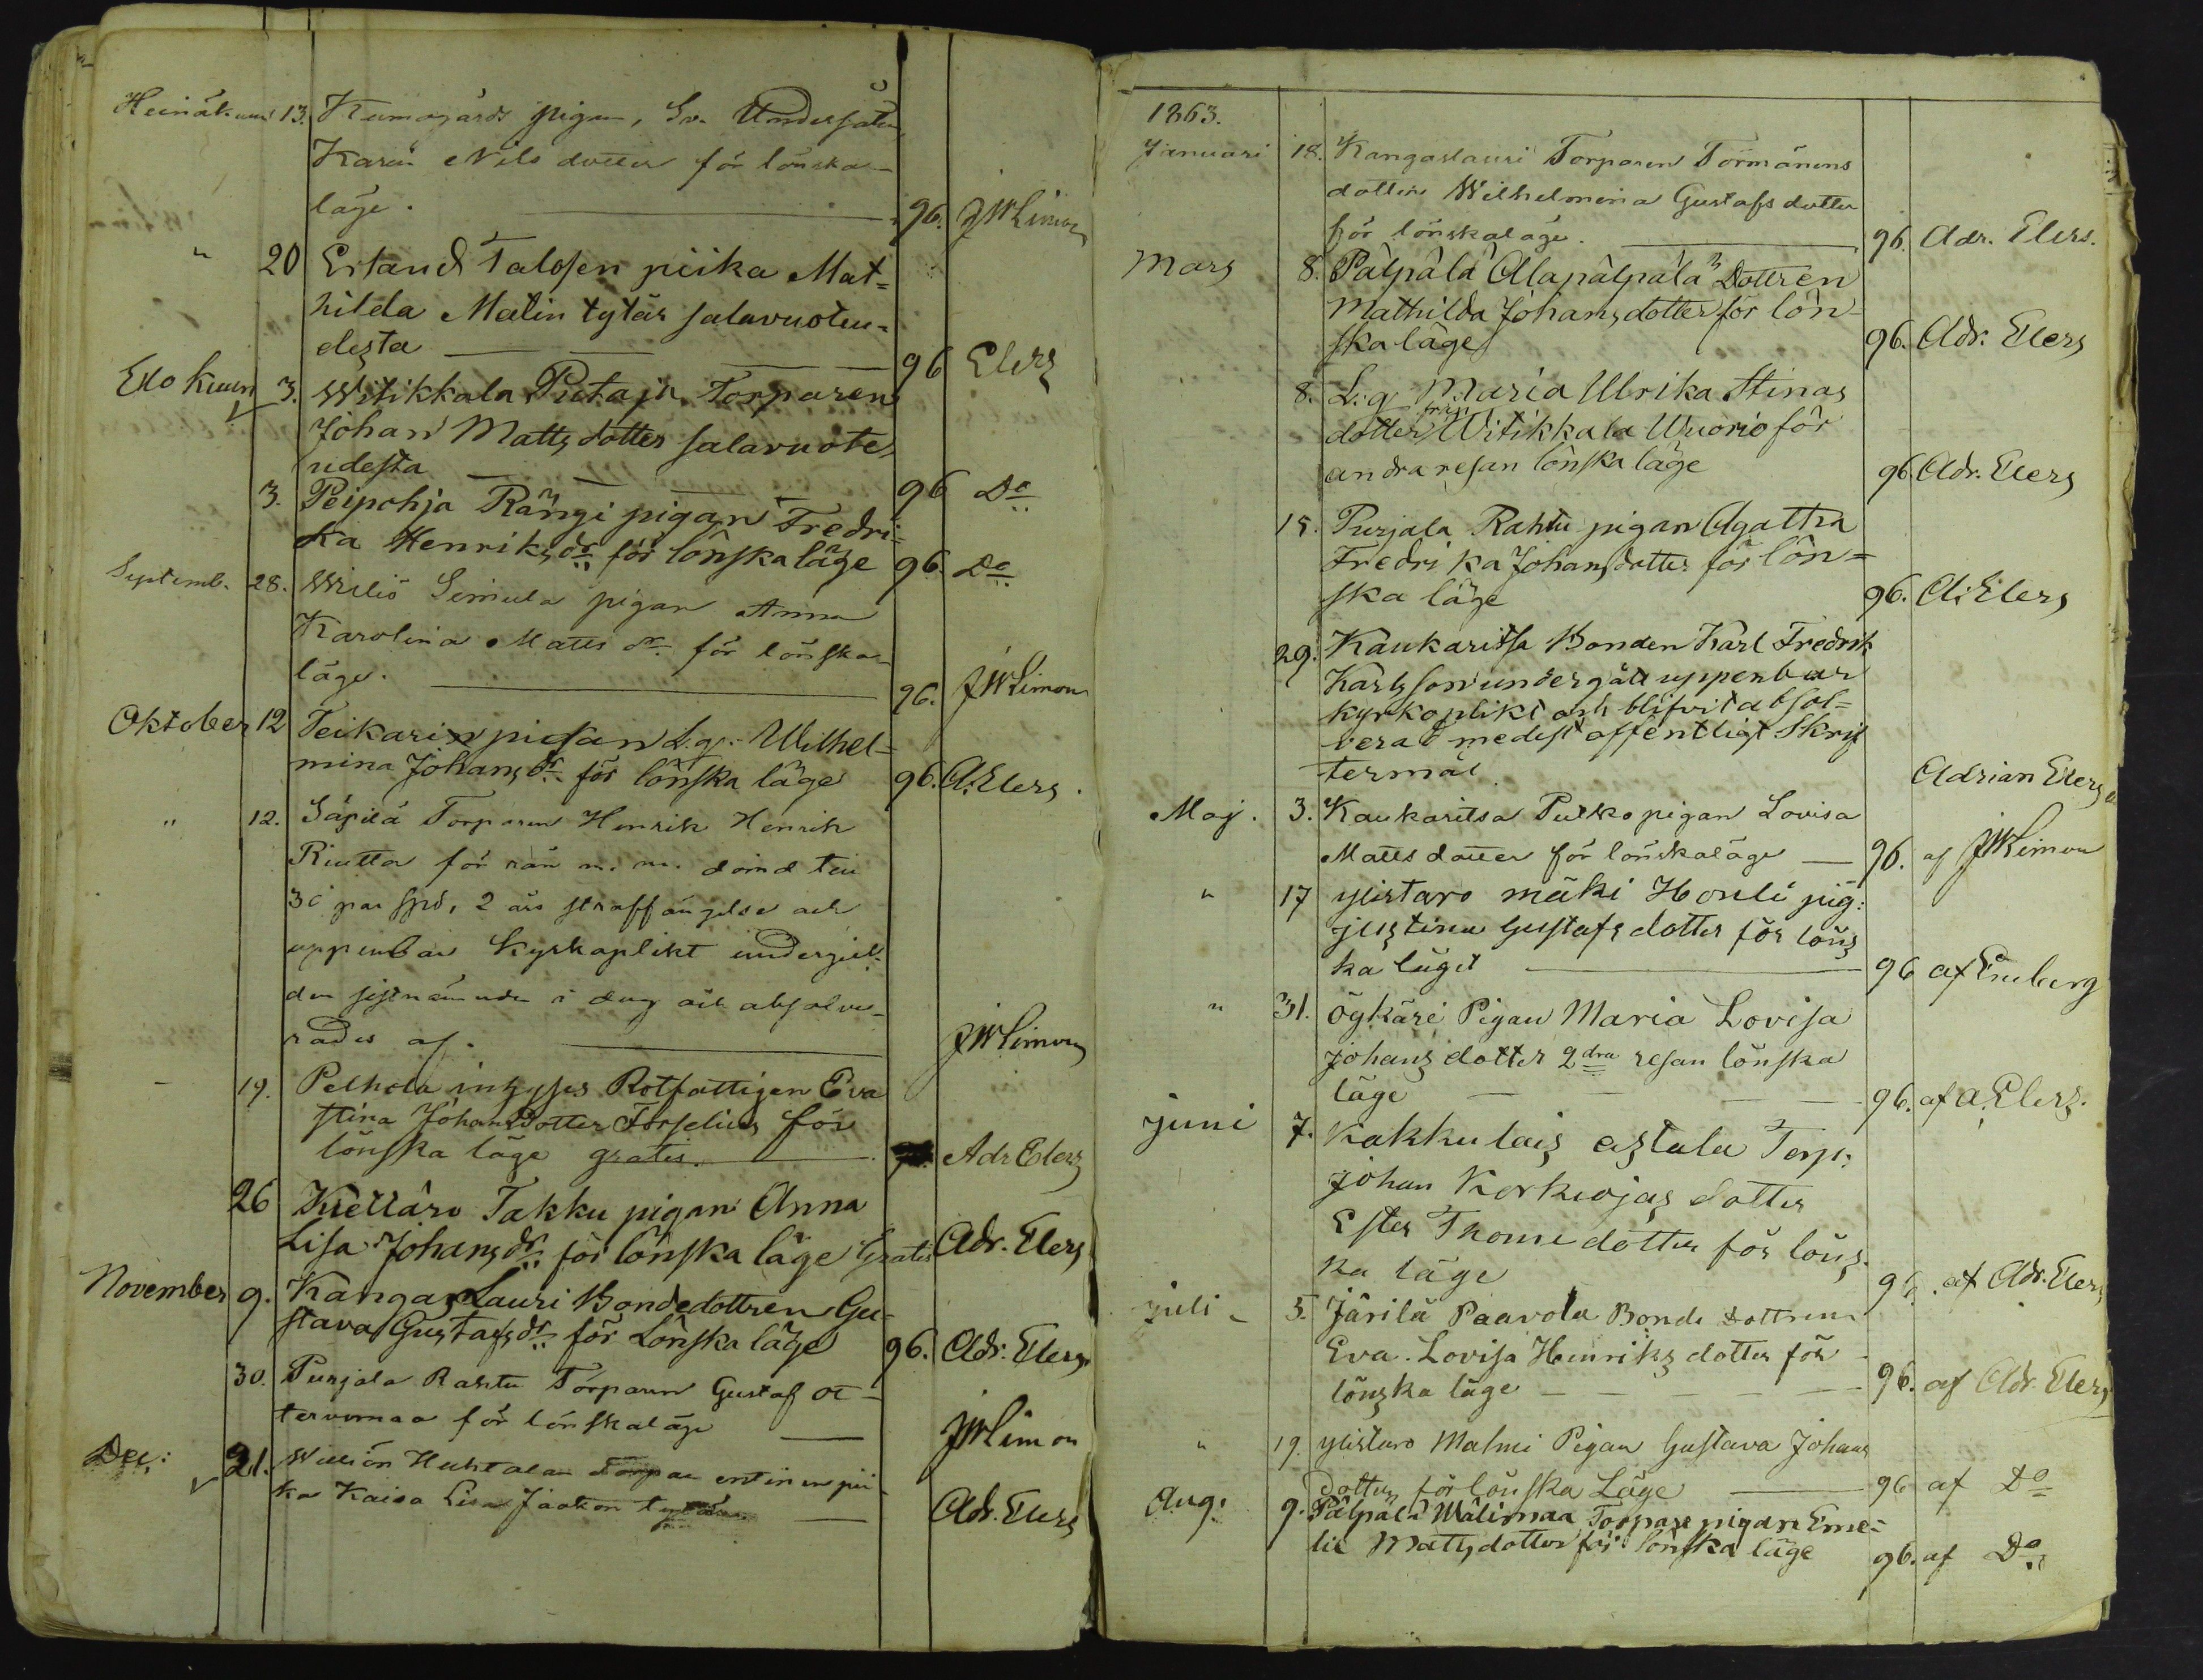 Heinäkuu 13. Kumogårds pigan, Sv. Undersåten
Karin Nils dotter för lönska
läge. 96. JWLimon
" 20 Erland Talosen piika Mat=
hilda Matin tytär salavuoteu=
desta 96 Elers
Elo kuun 3. Witikkala Pietaja Torparen
Johan Matts dotter salavuote
udesta 96 Do
3. Peipohja Rängi pigan Fredri=
ka Henriks dr för lönska läge 96. Do
Septemb. 28. Wiliö Simula pigan Anna
Karolina Matts dr för lönska
läge. 96. JWLimon
Oktober 12 Teikari pigan L:g: Wilhel=
mina Johans dr för lönska läge 96. A. Elers.
" 12. Säpilä Torparen Henrik Henrik
Riutta för rån m. m. dömd till
30 par spö, 2 års straffängelse och
uppenbar Kyrkoplikt undergick
den sistnämnde i dag och absolve-
rades af. JWLimon
19. Pelhola inhyses Rotfattigen Eva
Stina Johans Dotter Forselius för
lönska läge gratis. Adr Elers
26 Kiettäre Takku pigan Anna
Lisa Johans dr för lönska läge Gratis Adr. Elers
November 9. Kangas Lauri Bondedottren Gu-
stava Gustafs dr för Lönska läge 96. Adr. Elers
30. Purjala Rahtu Torparen Gustaf Ot-
tervomaa för lönskaläge JWLimon
Dec: 21. Williön Huhtalan Torpan entinen pii-
ka Kaisa Lisa Jaakon tytär Adr. Elers
1863.
Januari 18. Kangaslauri Torparen Törmänens
dotter Wilhelmina Gustafs dotter
för lönskaläge. 96. Adr. Elers.
Mars 8. Pälpälä Alapälpälä Dottren
Mathilda Johans dotter för lön-
ska läge 96. Adr. Elers
8. L:g Maria Ulrika Stinas
dotter från Witikkala Wuorio för
andra resan lönska läge 96. Adr. Elers
15. Purjala Rahtu pigan Agatha
Fredrika Johans dotter för lön=
ska läge 96. A: Elers
29. Kaukaritsa Bonden Karl Fredrik
Karlsson undergått uppenbar
kyrkoplikt och blifvit absol=
verad medest offentligt Skrif
termål Adrian Elers
Maj. 3. Kaukaritsa Pukko pigan Lovisa
Matts dotter för lönskaläge 96. af JWLimon
" 17 ylistaro mäki Honli pig:
justina Gustafs dotter för löns
ka läget 96 af Eneberg
" 31. ögkäri Pigan Maria Lovisa
Johans dotter 2dra resan lönska
läge 96. af A. Elers.
juni 7. Kakkulais astala Torp:
johan Korkiojas dotter
Ester Thome dotter för löns-
ka läge 96. af Adr. Elers
juli 5. Järilä Paavola Bonde dottren
Eva Lovisa Henriks dotter för
lönska läge 96. af Adr. Elers
" 19. ylistaro Malmi Pigan Gustava Johans
Dotter för lönska Läge 96 af Do
Aug: 9. Pälpälä Wälimaa Torpare pigan Eme=
lie Matts dotter för lönska läge 96. af Do